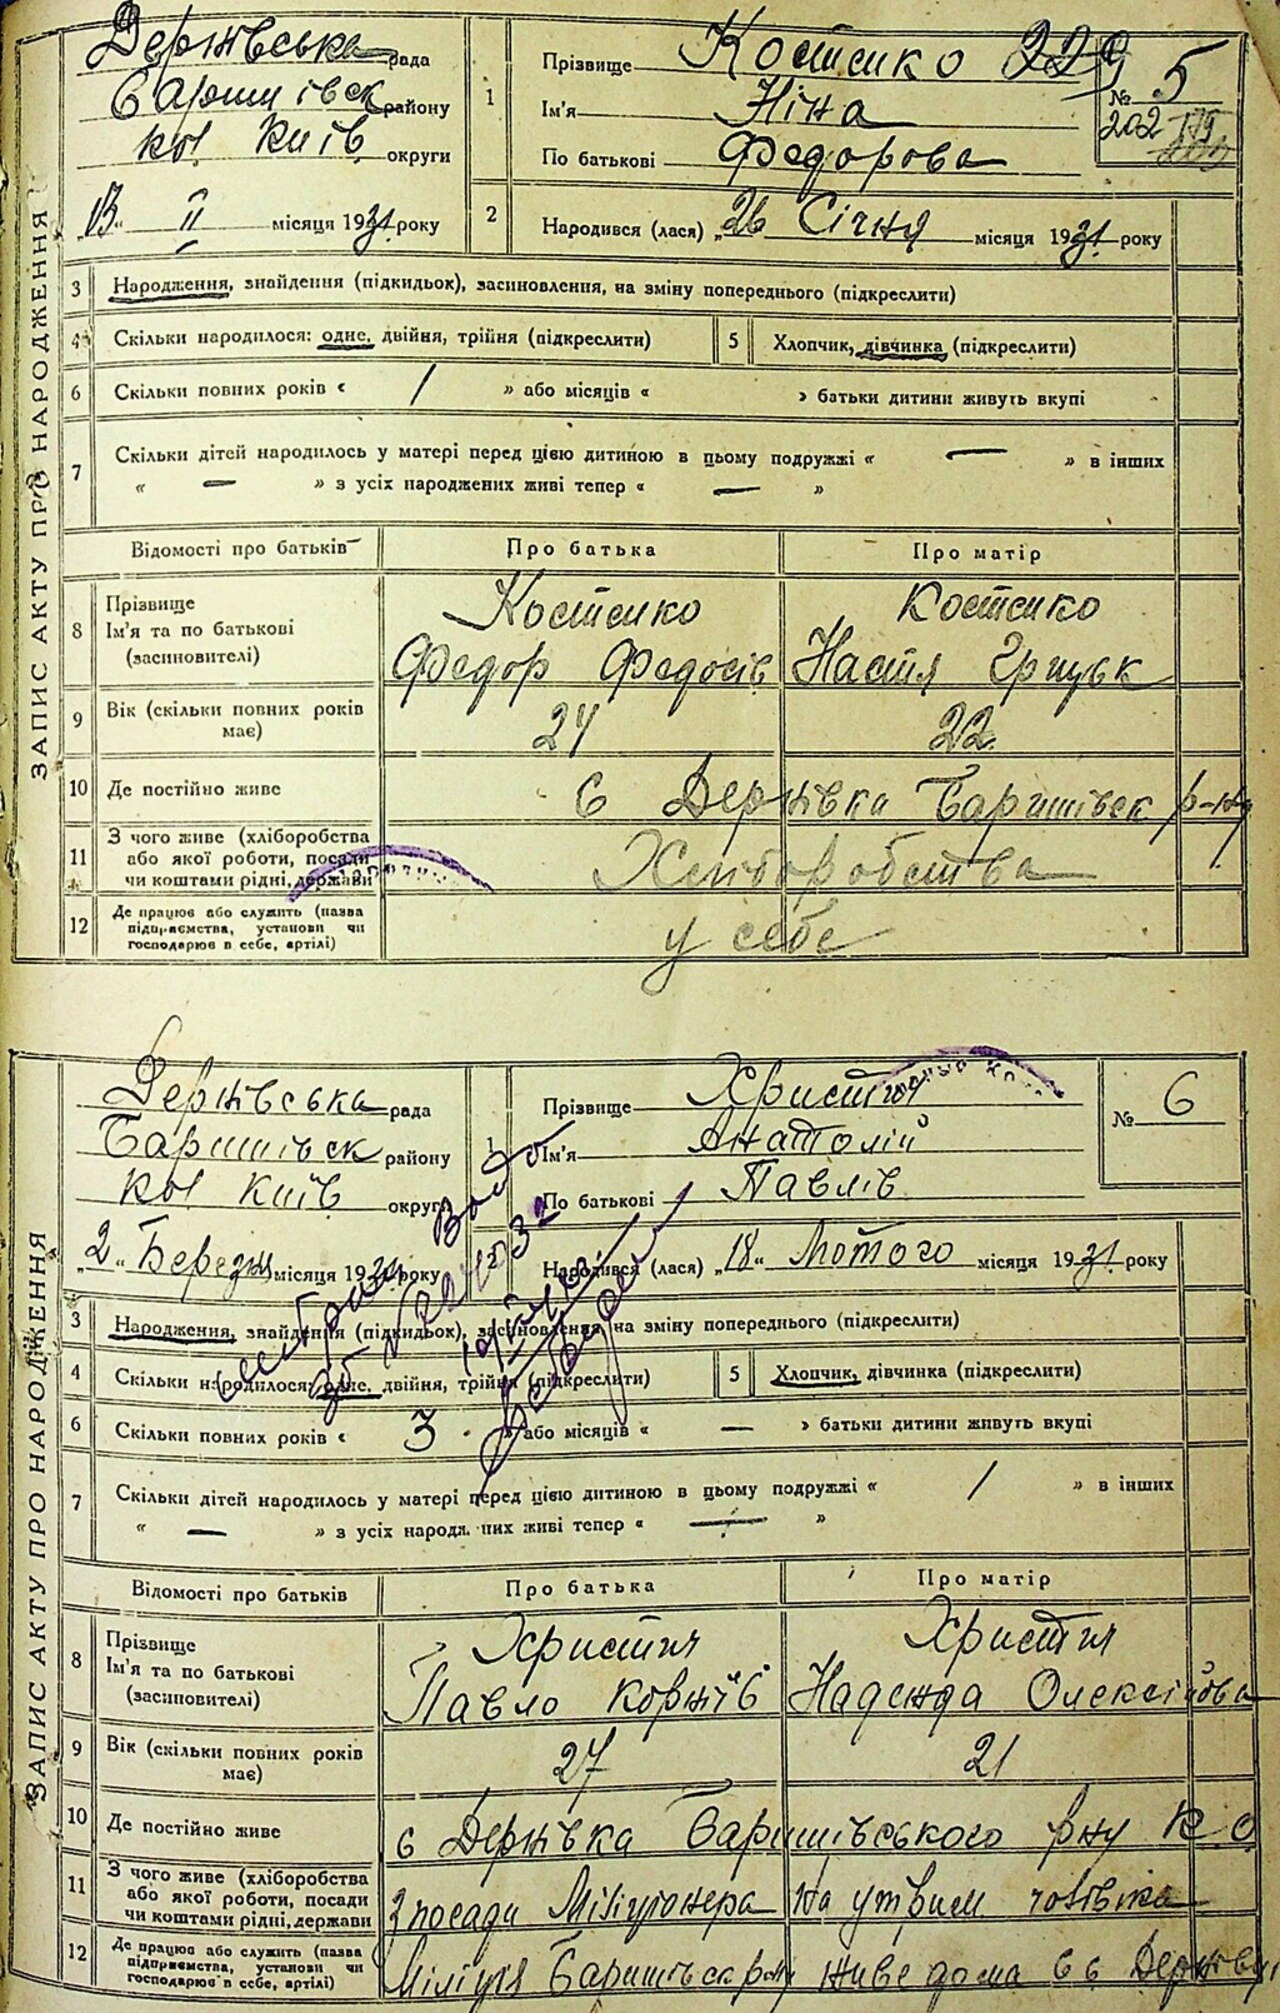 ЗАПИС АКТУ ПРО НАРОДЖЕННЯ
Дернівська рада
Баришівск району
кол Київ округи
"13" II місяця 1931 року
1 Прізвище Костенко
Ім'я Ніна
По батькові Федорова
229
№ 5
202
2 Народився (лася) "26 Січня місяця 1931 року
3 Народження, знайдення (підкидьок), засиновлення, на зміну попереднього (підкреслити)
4 Скільки народилося: одне, двійня, трійня (підкреслити) 5 Хлопчик, дівчинка (підкреслити)
6 Скільки повних років « / » або місяців « » батьки дитини живуть вкупі
7 Скільки дітей народилось у матері перед цією дитиною в цьому подружжі « — » в інших
« — » з усіх народжених живі тепер « — »
Відомості про батьків Про батька Про матір
8 Прізвище Ім'я та по батькові (засиновителі)
Костенко Костенко
Федор Федосів Настя Грицьк
9 Вік (скільки повних років має) 24 22
10 Де постійно живе с Дернівка Баришівск р-ну
11 З чого живе (хліборобства або якої роботи, посади чи коштами рідні, держави Хліборобства
12 Де працює або служить (назва підприємства, установи чи господарює в себе, артілі) у себе
ЗАПИС АКТУ ПРО НАРОДЖЕННЯ
Дернівська рада
Баришівск району
кол Київ округи
"2" Березня місяця 1931 року
1 Прізвище Християн
Ім'я Анатолій
По батькові Павлів
№ 6
2 Народився (лася) "18" Лютого місяця 1931 року
3 Народження, знайдення (підкидьок), засиновлення, на зміну попереднього (підкреслити)
4 Скільки народилося: одне, двійня, трійня (підкреслити) 5 Хлопчик, дівчинка (підкреслити)
6 Скільки повних років « 3 » або місяців « — » батьки дитини живуть вкупі
7 Скільки дітей народилось у матері перед цією дитиною в цьому подружжі « / » в інших
« — » з усіх народжених живі тепер « — »
Відомості про батьків Про батька Про матір
8 Прізвище Ім'я та по батькові (засиновителі)
Християн Християн
Павло Корнів Надежда Олексійова
9 Вік (скільки повних років має) 27 21
10 Де постійно живе с Дернівка Баришівського рну К.О
11 З чого живе (хліборобства або якої роботи, посади чи коштами рідні, держави З посади Міліціонера На утрим чоловіка
12 Де працює або служить (назва підприємства, установи чи господарює в себе, артілі) Міліція Баришівск рону живе дома в с Дернівці